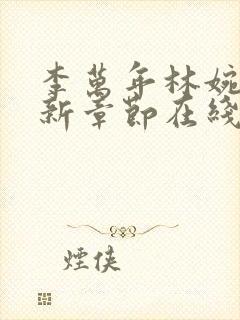 李萬年林婉
新章節在綫
煙俠